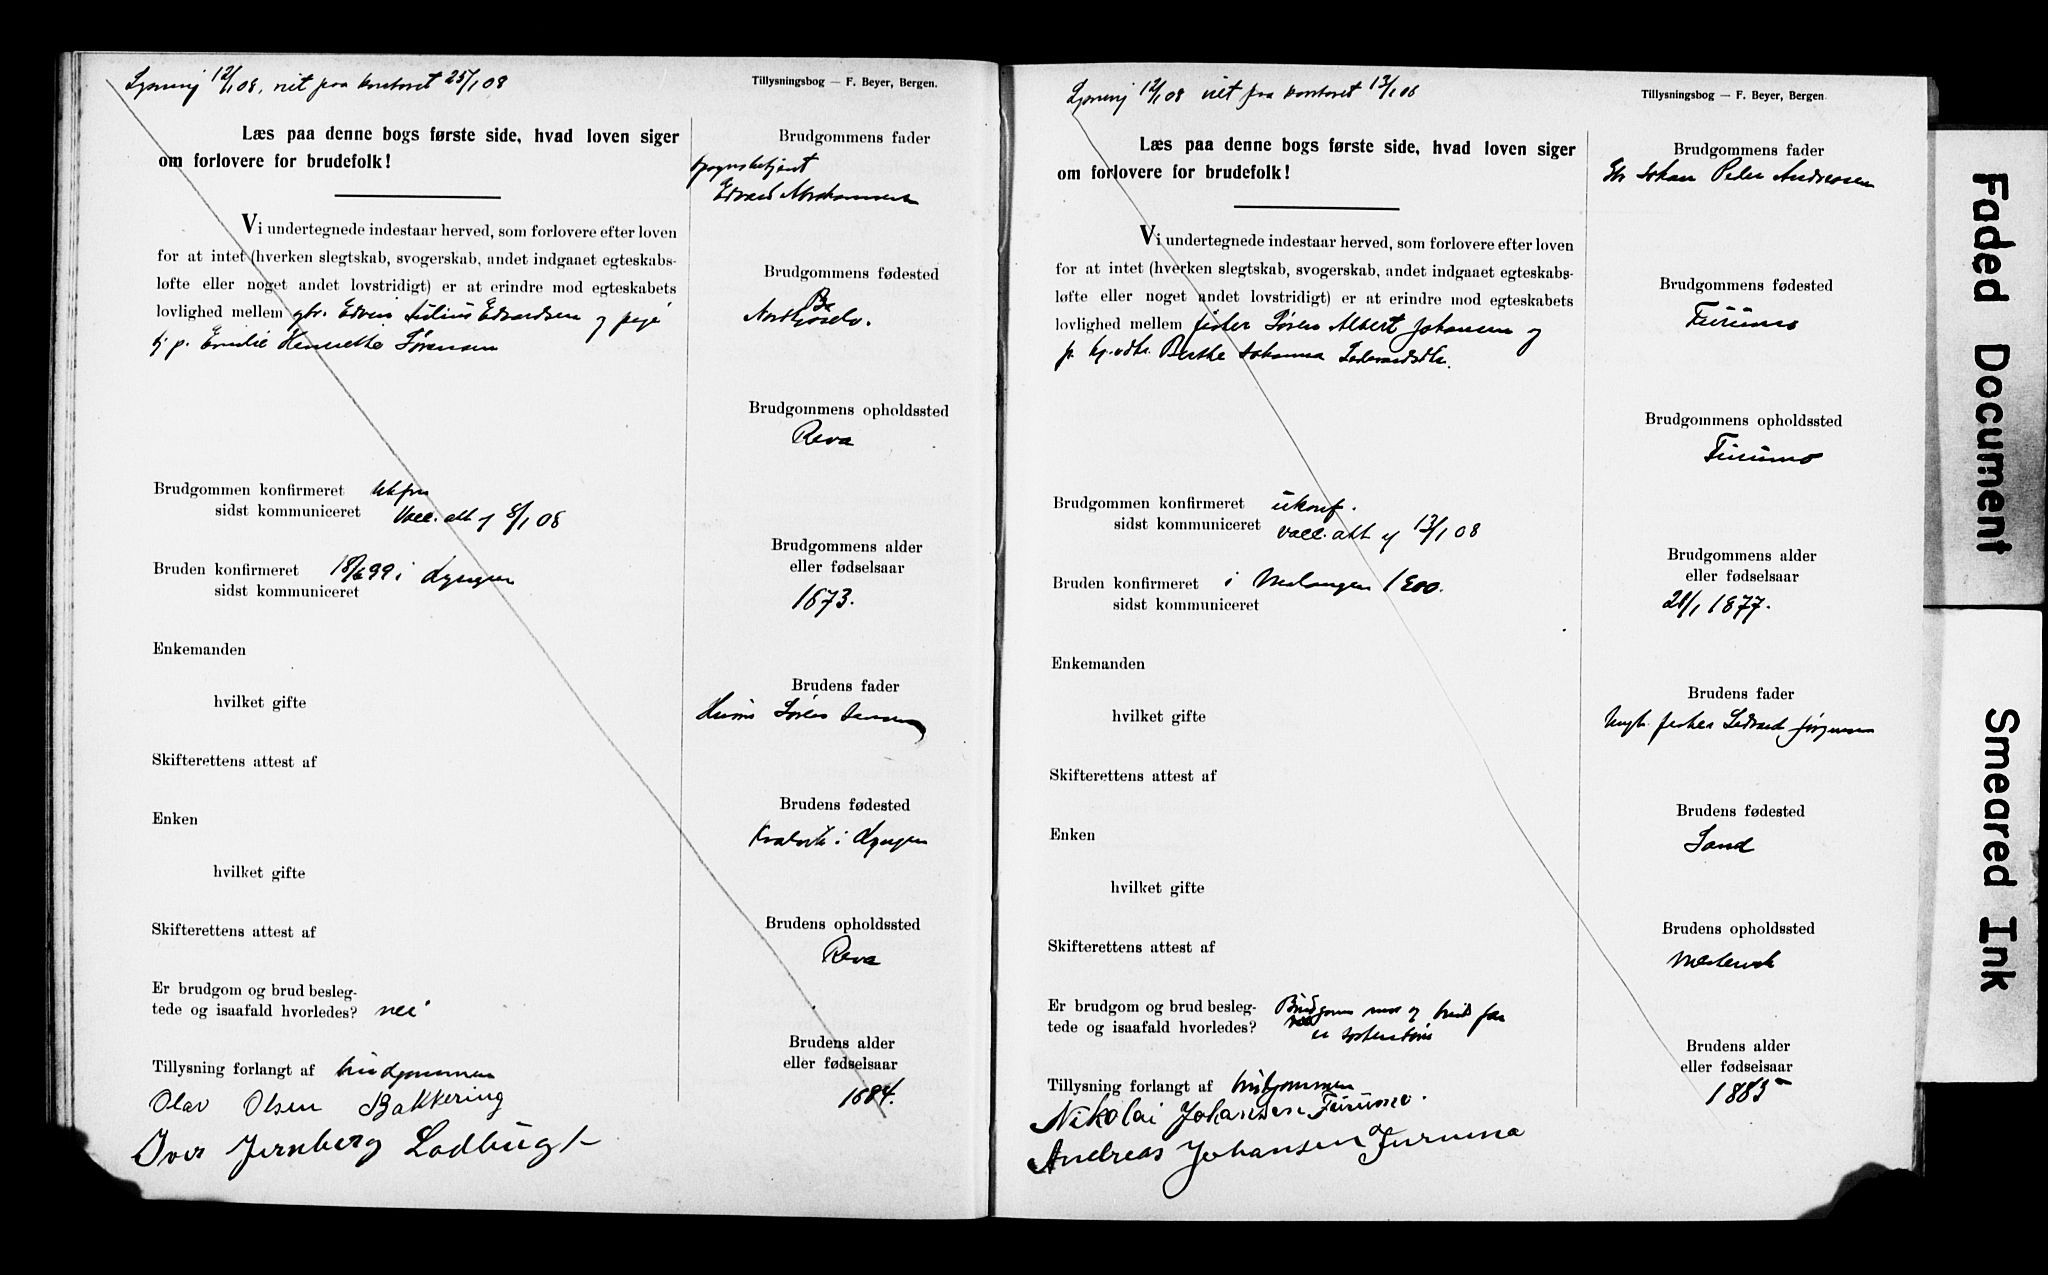 Lysning 12/1 08, viet paa kontoret 25/1 08
Tillysningsbog — F. Beyer, Bergen.
Læs paa denne bogs første side, hvad loven siger
om forlovere for brudefolk!
Vi undertegnede indestaar herved, som forlovere efter loven
for at intet (hverken slegtskab, svogerskab, andet indgaaet egteskabs-
løfte eller noget andet lovstridigt) er at erindre mod egteskabets
lovlighed mellem gbr. Edvin Julius Edvardsen og pige
Emilie Henriette Sørensen
Brudgommen konfirmeret
sidst kommuniceret Vacc. att. 8/1 08
Bruden konfirmeret 18/6 99 i Lyngen
sidst kommuniceret
Enkemanden
hvilket gifte
Skifterettens attest af
Enken
hvilket gifte
Skifterettens attest af
Er brudgom og brud besleg-
tede og isaafald hvorledes? nei
Tillysning forlangt af brudgommen
Olav Olsen Bakkering
Iver Jernberg Lodbugt
Brudgommens fader
Edvard Abrahamsen
Brudgommens fødested
Brudgommens opholdssted
Reva
Brudgommens alder
eller fødselsaar
1873.
Brudens fader
Søren Jensen
Brudens fødested
Kvalvik i Lyngen
Brudens opholdssted
Reva
Brudens alder
eller fødselsaar
1884.
Lysning 12/1 08 viet paa kontoret 13/1 08
Tillysningsbog — F. Beyer, Bergen.
Læs paa denne bogs første side, hvad loven siger
om forlovere for brudefolk!
Vi undertegnede indestaar herved, som forlovere efter loven
for at intet (hverken slegtskab, svogerskab, andet indgaaet egteskabs-
løfte eller noget andet lovstridigt) er at erindre mod egteskabets
lovlighed mellem fisker Søren Albert Johansen og
Berthe Johanna Ledvardsdtr.
Brudgommen konfirmeret ukonf.
sidst kommuniceret vacc. att. 13/1 08
Bruden konfirmeret i Malangen 1900.
sidst kommuniceret
Enkemanden
hvilket gifte
Skifterettens attest af
Enken
hvilket gifte
Skifterettens attest af
Er brudgom og brud besleg- Brudgoms mor og bruds far
tede og isaafald hvorledes? er søskenbørn
Tillysning forlangt af brudgommen
Nikolai Johansen Furumo.
Andreas Johansen Furumo
Brudgommens fader
Johan Peder Andreassen
Brudgommens fødested
Furumo
Brudgommens opholdssted
Furumo
Brudgommens alder
eller fødselsaar
28/1 1877.
Brudens fader
fisker Ledvard Jørgensen
Brudens fødested
Sand
Brudens opholdssted
Mestervik
Brudens alder
eller fødselsaar
1885
Faded Document
Smeared Ink